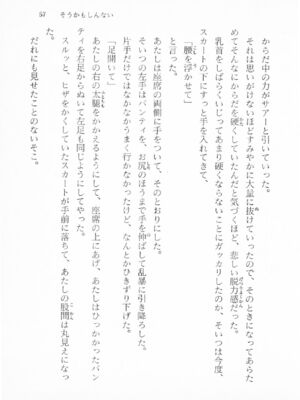 57　そうかもしんない
からだ中の力がサアーと引いていった。
それは思いがけないほどすみやかに大量に抜けていったので、そのときになってあらた
めてそんなにからだを硬くしていたんだと気づくほど、悲しい脱力感だった。
乳首をしばらくいじってあまり硬くならないことにガッカリしたのか、そいつは今度、
スカートの下にすっと手を入れてきて、
「腰を浮かせて」
と言った。
あたしは座席の両側に手をついて、そのとおりにした。
そいつの左手はパンティを、お尻のほうまで手を伸ばして乱暴に引き降ろした。
片手だけではなかなかうまく行かなかったけど、なんとかひきずり下げた。
「足開いて」
あたしの右の太腿をかかえるようにして、座席の上にあげ、あたしはひっかかったパン
ティを右足からぬいて左足も同じようにしてやった。
スルッと、ヒザをかくしていたスカートが手前に落ちて、あたしの股間は丸見えになっ
た。
だれにも見せたことのないそこ。